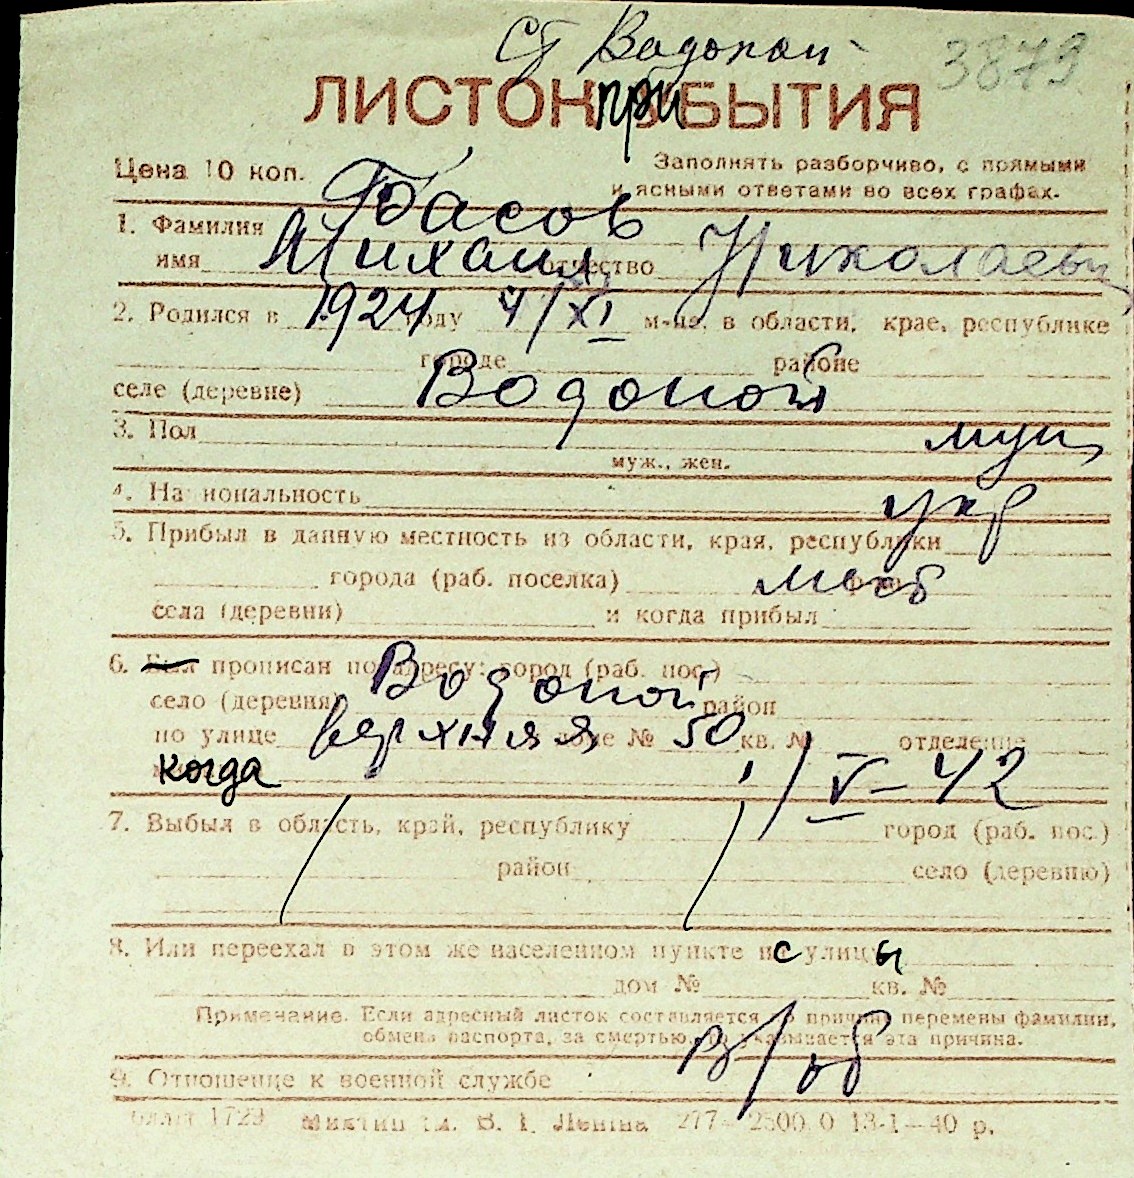 Ст Водопой
3879
ЛИСТОК ПРИБЫТИЯ
Цена 10 коп.
Заполнять разборчиво, с прямыми
и ясными ответами во всех графах.
1. Фамилия Басов
имя Михаил отчество Николаевич
2. Родился в 1924 году 4/XI м-ца, в области, крае, республике
городе районе
селе (деревне) Водопой
3. Пол муж
муж., жен.
4. Национальность укр
5. Прибыл в данную местность из области, края, республики
города (раб. поселка) мест
села (деревни) и когда прибыл
6. Был прописан по адресу: город (раб. пос.)
село (деревня) Водопой район
по улице верхняя доме № 50 кв. № отделение
когда 1/V-42
7. Выбыл в область, край, республику город (раб. пос.)
район село (деревню)
8. Или переехал в этом же населенном пункте с улицы
дом № кв. №
Примечание. Если адресный листок составляется по причине перемены фамилии,
обмена паспорта, за смертью, то указывается эта причина.
9. Отношение к военной службе в/об
1729 В. І. Леніна 277—2500.0 13-1—40 р.